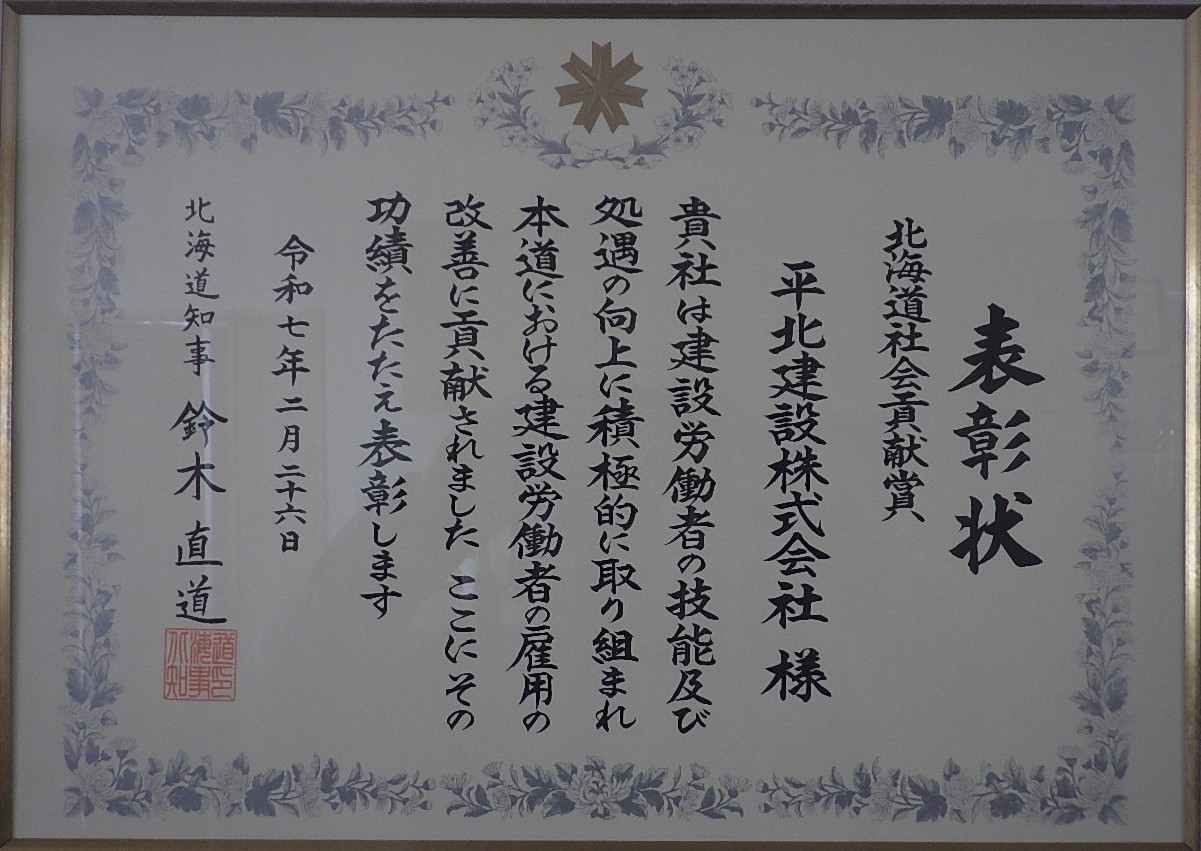 表彰状
北海道社会貢献賞
平北建設株式会社 様
貴社は建設労働者の技能及び
処遇の向上に積極的に取り組まれ
本道における建設労働者の雇用の
改善に貢献されました ここにその
功績をたたえ表彰します
令和七年二月二十六日
北海道知事 鈴木直道